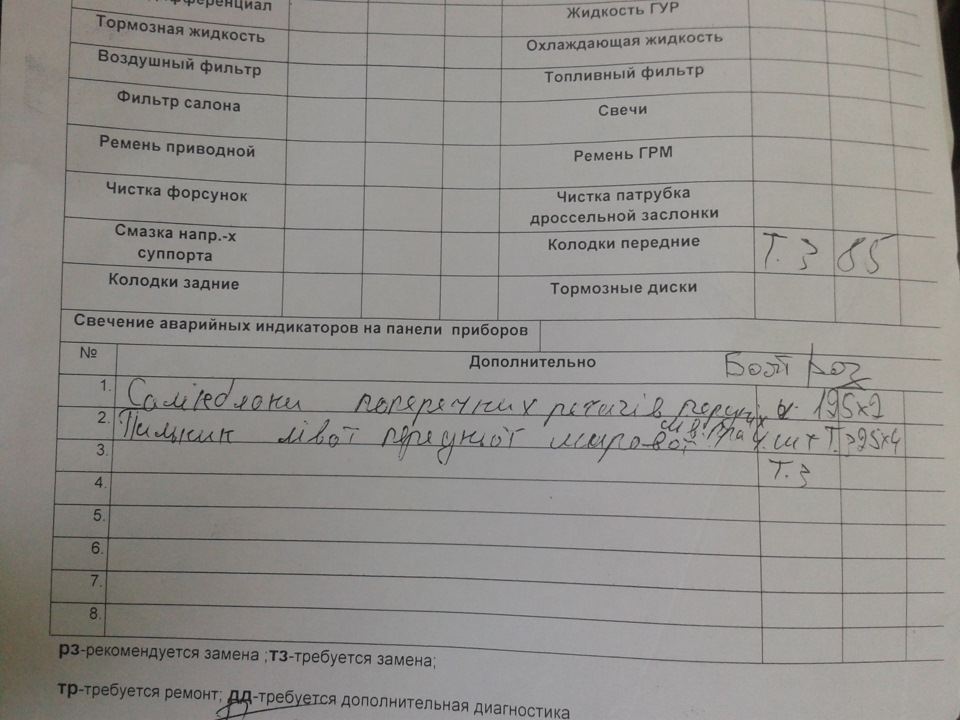 дифференциал
Жидкость ГУР
Тормозная жидкость
Охлаждающая жидкость
Воздушный фильтр
Топливный фильтр
Фильтр салона
Свечи
Ремень приводной
Ремень ГРМ
Чистка форсунок
Чистка патрубка
дроссельной заслонки
Смазка напр.-х
суппорта
Колодки передние Т.З 85
Колодки задние
Тормозные диски
Свечение аварийных индикаторов на панели приборов
№ Дополнительно
1. Сайлєблоки поперечних регачів передніх 195х2
2. Пильник лівої передньої шарової Т.З 95х4
3. Т.З
4.
5.
6.
7.
8.
рз-рекомендуется замена ;тз-требуется замена;
тр-требуется ремонт; дд-требуется дополнительная диагностика